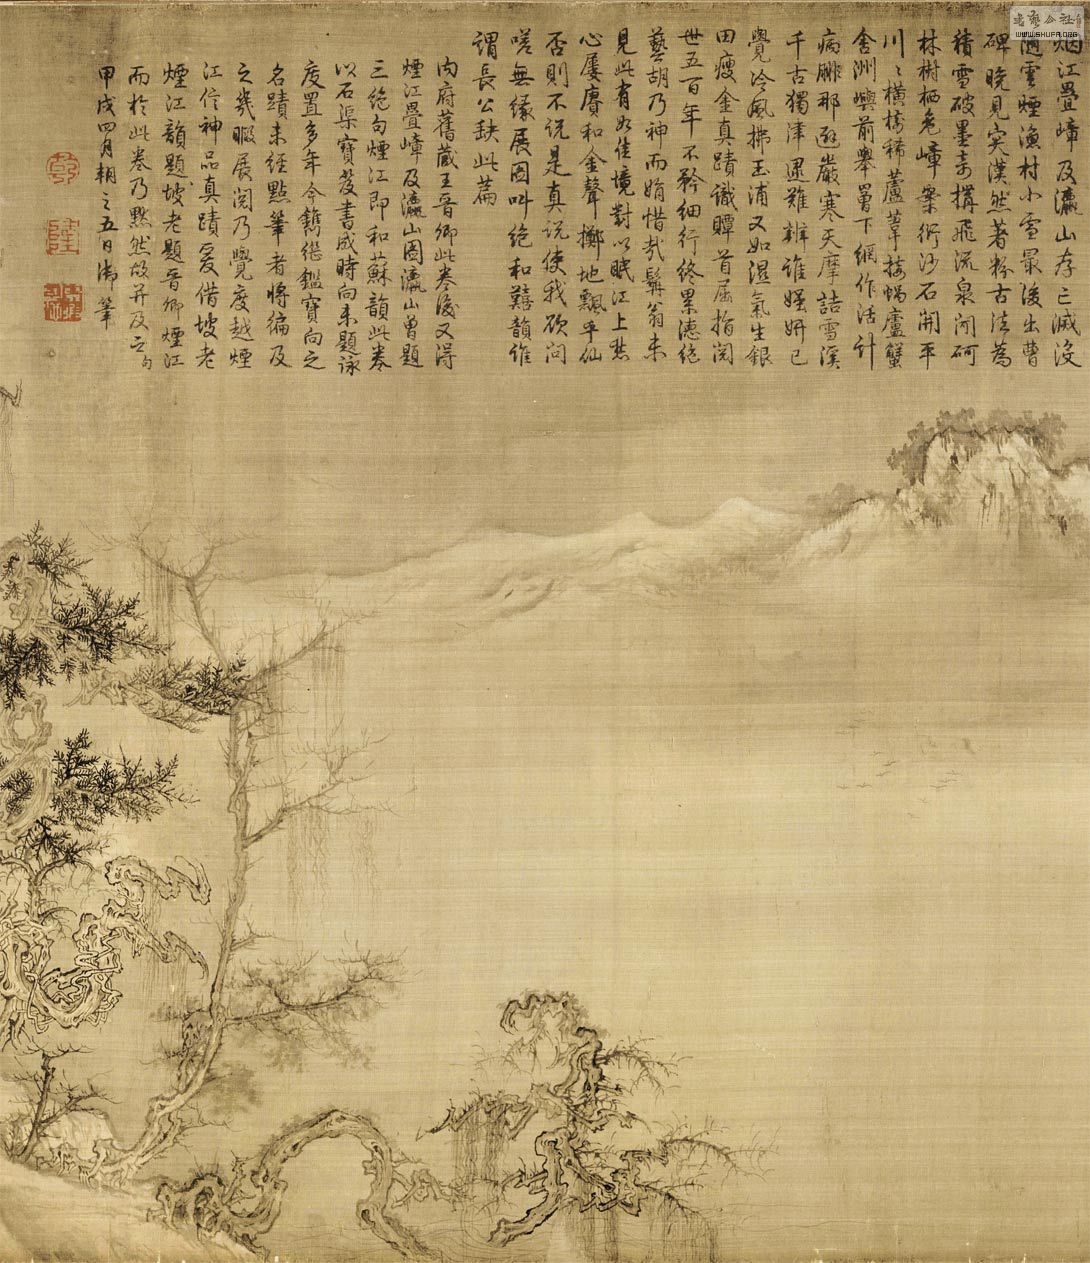 烟江疊嶂及瀛山存亡滅沒
隨雲煙漁村小雪最後出曹
碑晚見突漢然著粉古法為
積雪破墨奇搆飛流泉閒砢
林樹栖危嶂案衍沙石開平
川川橫橋稀蘆葦接蝸廬蟹
舍洲嶼前舉罾下網作活計
病腓那避嚴寒天摩詰雪溪
千古獨津逮難辨誰媸妍已
覺冷風拂玉浦又如濕氣生銀
田瘦金真蹟識贉首屈指閱
世五百年不矜細行終累德絕
藝胡乃神而娟惜哉髯翁未
見此有如佳境對以眠江上愁
心屢賡和金聲擲地飄乎仙
否則不說是真說使我欲問
嗟無緣展圖叫絕和囏韻誰
謂長公缺此篇
內府舊藏王晉卿此卷後又得
煙江疊嶂及瀛山圖瀛山曾題
三絕句煙江即和蘇韻此卷
以石渠寶笈書成時向未題詠
庋置多年今鐫繼鑑寶向之
名蹟未經點筆者將徧及
之幾暇展閱乃覺度越煙
江信神品真蹟爰借坡老
煙江韻題坡老題晉卿煙江
而於此卷乃默然故并及之句
甲戌四月朝之五日御筆
乾
隆
書藝公社
WWW.SHUFA.ORG